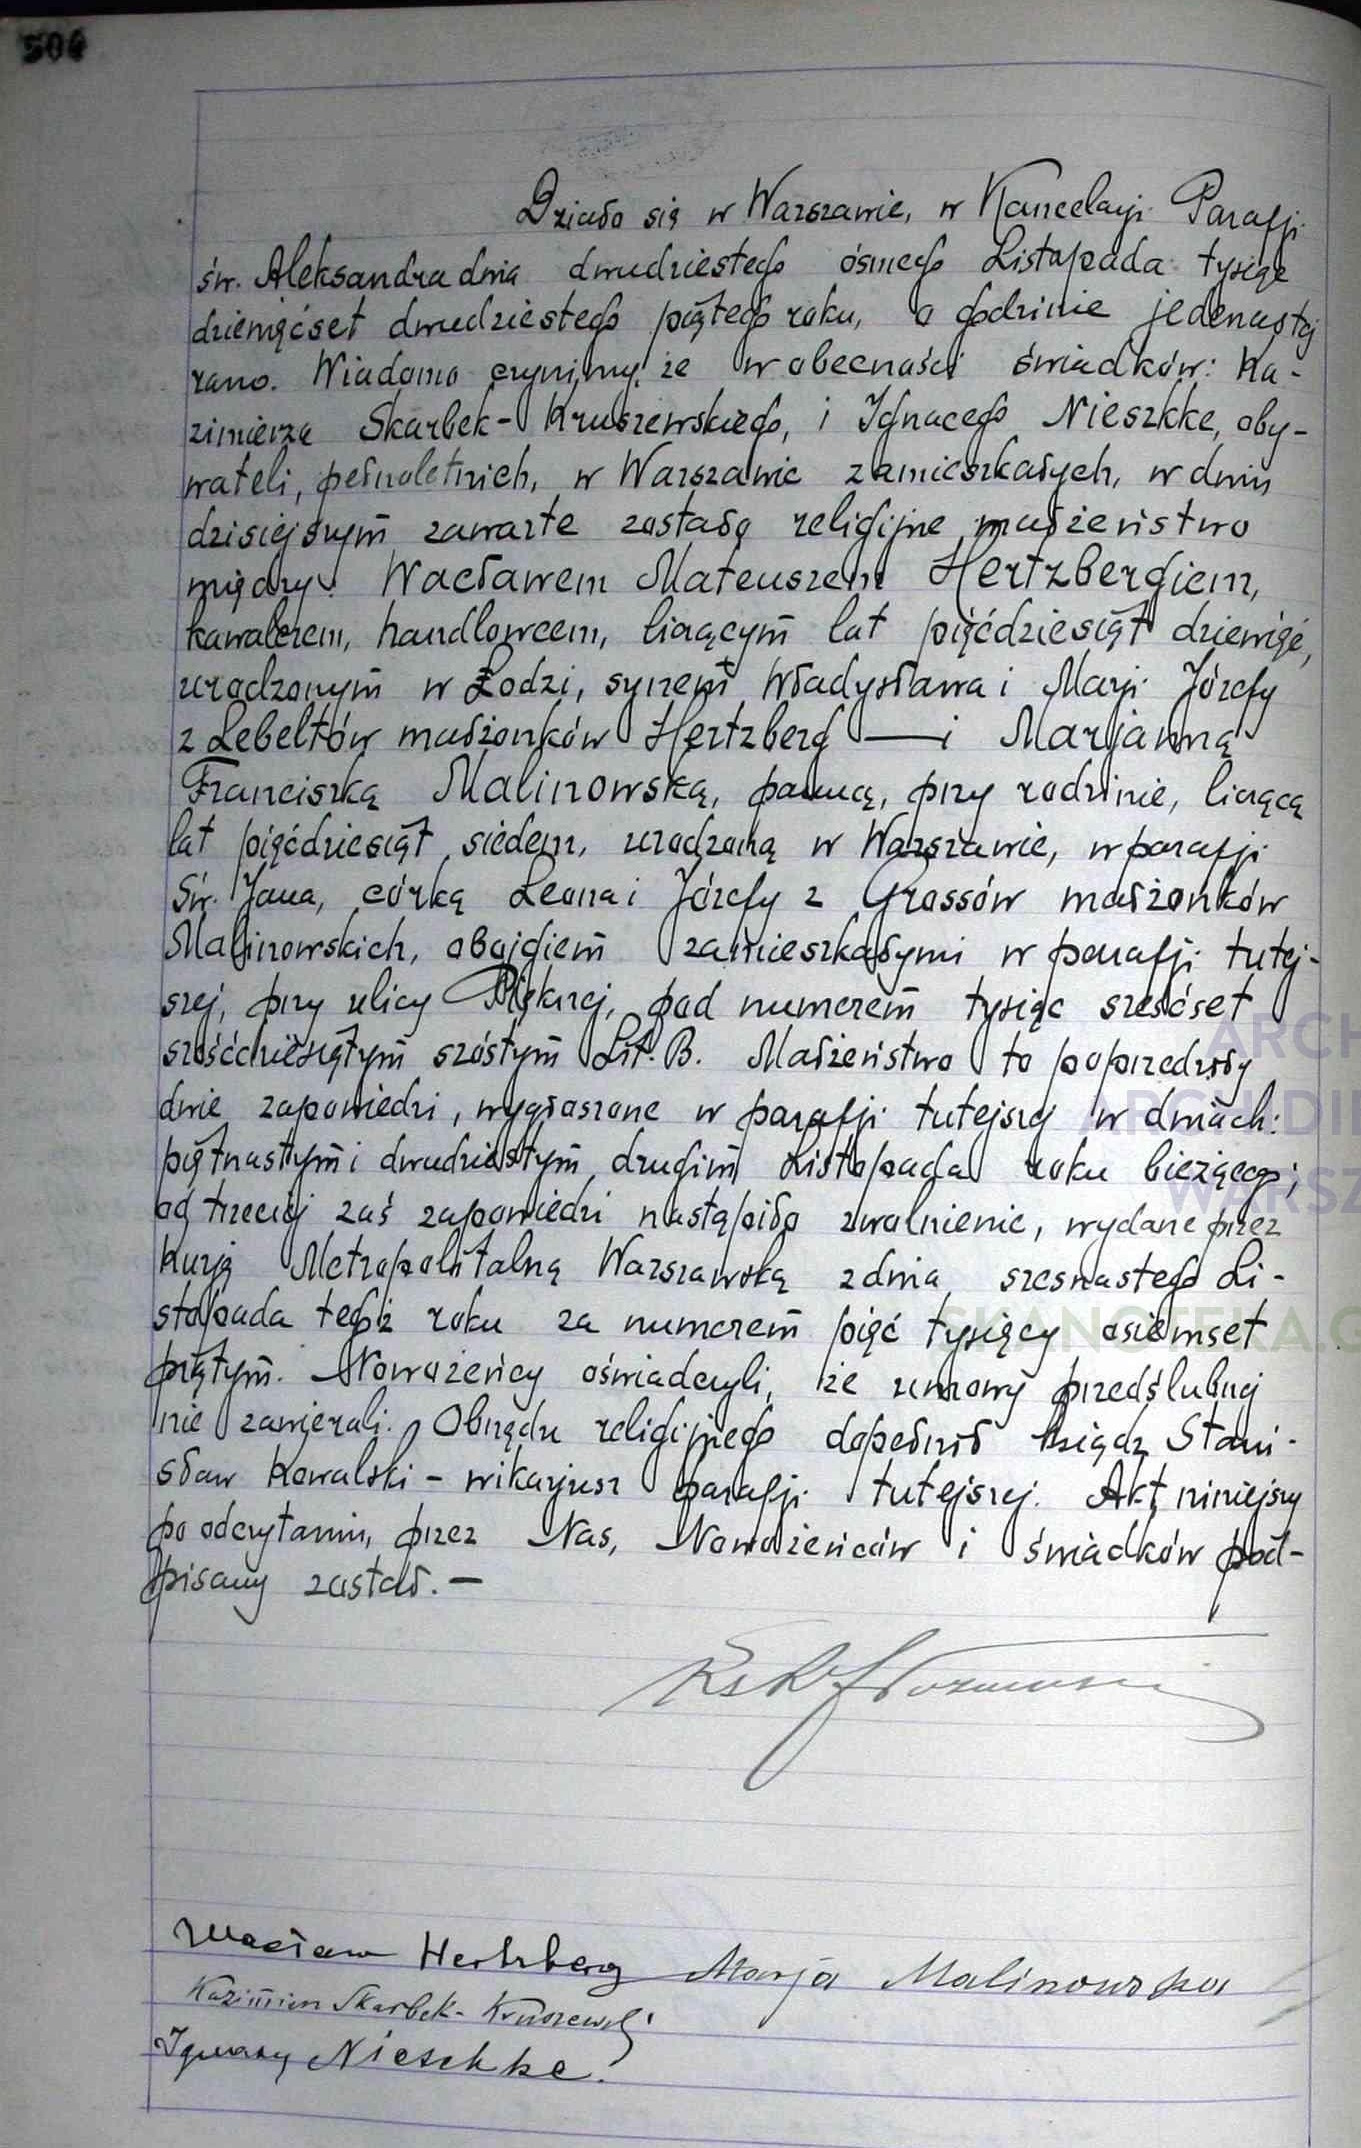 504
Działo się w Warszawie, w Kancelarji Parafji
św. Aleksandra dnia dwudziestego ósmego Listopada tysiąc
dziewięćset dwudziestego piątego roku, o godzinie jedenastej
rano. Wiadomo czynimy, że w obecności świadków: Ka-
zimierza Skarbek-Kruszewskiego, i Ignacego Nieszkke, oby-
wateli, pełnoletnich, w Warszawie zamieszkałych, w dniu
dzisiejszym zawarte zostało religijne małżeństwo
między: Wacławem Mateuszem Hertzbergiem,
kawalerem, handlowcem, liczącym lat pięćdziesiąt dziewięć,
urodzonym w Łodzi, synem Władysława i Marji Józefy
z Lebeltów małżonków Hertzberg — i Marjanną
Franciszką Malinowską, panną, przy rodzinie, liczącą
lat pięćdziesiąt siedem, urodzoną w Warszawie, w parafji
Św. Jana, córką Leona i Józefy z Grossów małżonków
Malinowskich, obojgiem zamieszkałymi w parafji tutej-
szej, przy ulicy Pięknej, pod numerem tysiąc sześćset
sześćdziesiątym szóstym Lit. B. Małżeństwo to poprzedziły
dwie zapowiedzi, wygłoszone w parafji tutejszej w dniach:
piętnastym i dwudziestym drugim Listopada roku bieżącego;
od trzeciej zaś zapowiedzi nastąpiło zwolnienie, wydane przez
Kurję Metropolitalną Warszawską z dnia szesnastego Li-
stopada tegoż roku za numerem pięć tysięcy osiemset
piątym. Nowożeńcy oświadczyli, że umowy przedślubnej
nie zawierali. Obrzędu religijnego dopełnił ksiądz Stani-
sław Kowalski - wikarjusz parafji tutejszej. Akt niniejszy
po odczytaniu, przez Nas, Nowożeńców i świadków pod-
pisany został. —
Wacław Hertzberg Marja Malinowska
Kazimierz Skarbek-Kruszewski
Ignacy Nieschke.
ARCH
ARCHIDI
WARSZ
SKANOTEKA.G